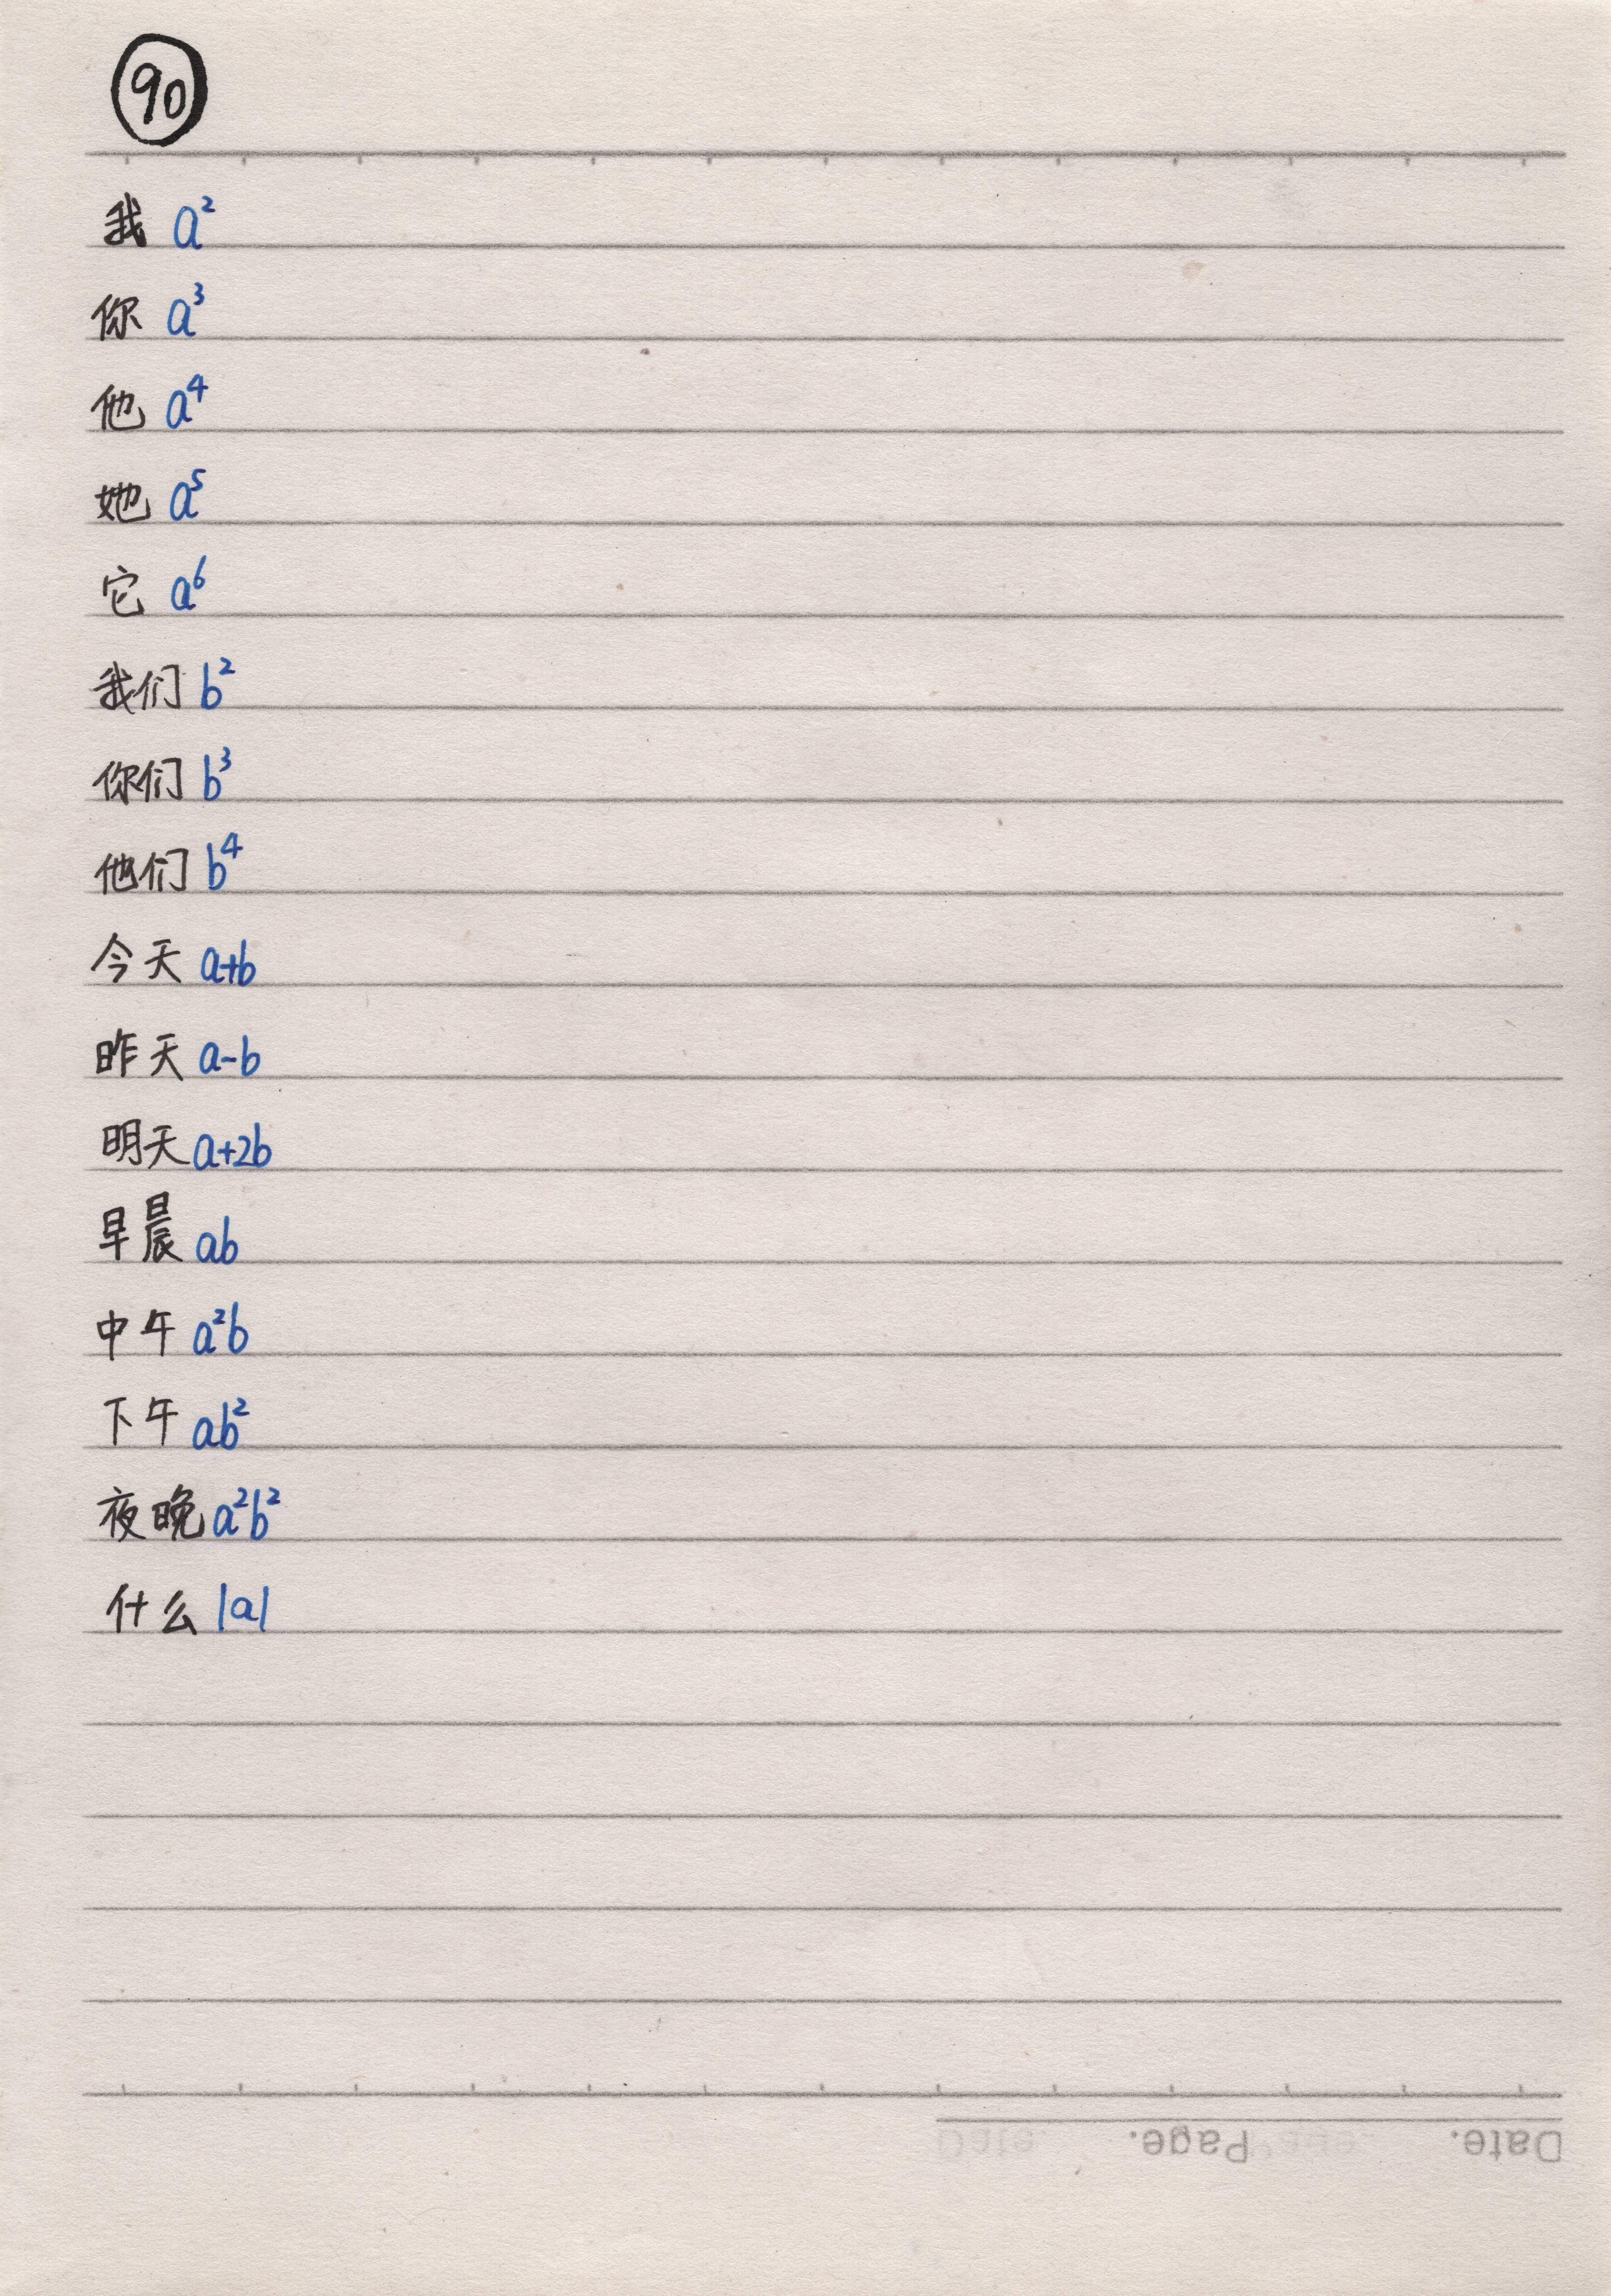 90
我 a²
你 a³
他 a⁴
她 a⁵
它 a⁶
我们 b²
你们 b³
他们 b⁴
今天 a+b
昨天 a-b
明天 a+2b
早晨 ab
中午 a²b
下午 ab²
夜晚 a²b²
什么 |a|
Date. Page.